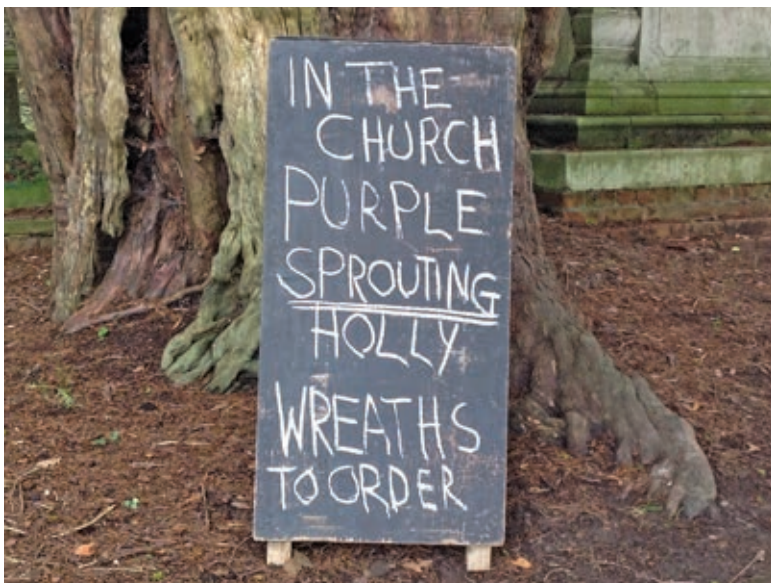 IN THE
CHURCH
PURPLE
SPROUTING
HOLLY
WREATHS
TO ORDER